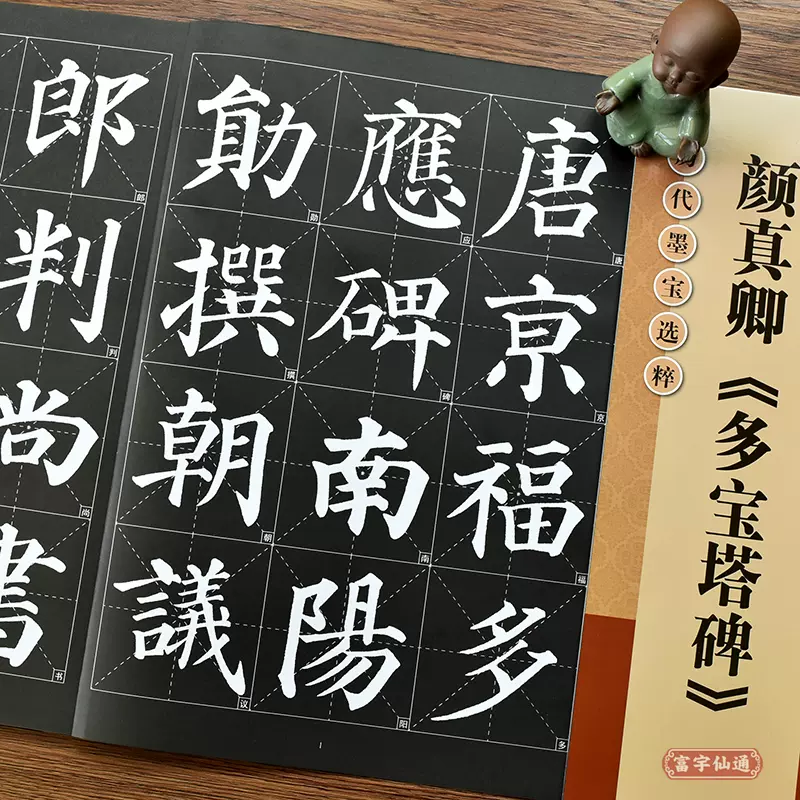 颜真卿《多宝塔碑》
代墨宝选粹
富宇仙通
唐亰福多
唐
京
福
多
應碑南陽
应
碑
南
阳
勛撰朝議
勋
撰
朝
议
郎判尚書
郎
判
尚
书
1